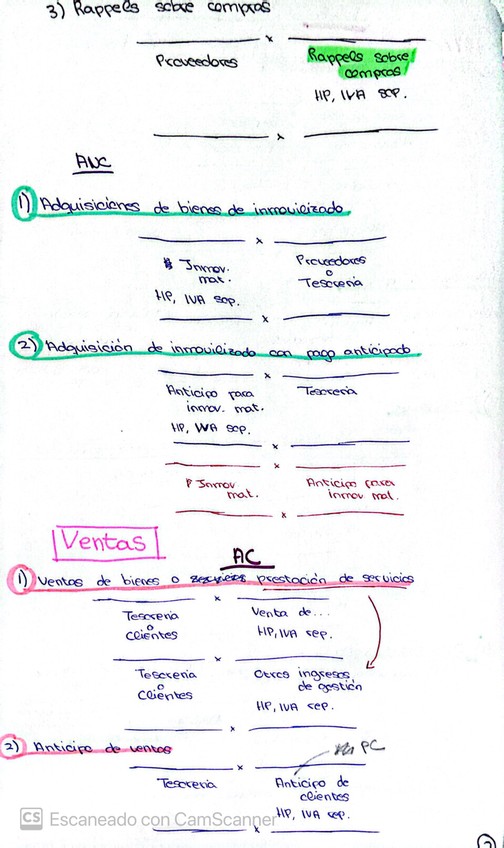 3) Rappels sobre compras
x
Proveedores
Rappels sobre
compras
HP, IVA sop.
x
ANC
1) Adquisiciones de bienes de inmovilizado
x
Inmov.
mat.
HP, IVA sop.
Proveedores
o
Tesorería
x
2) Adquisición de inmovilizado con pago anticipado
x
Anticipo para
inmov. mat.
HP, IVA sop.
Tesorería
x
x
Inmov
mat.
Anticipo para
inmov mat.
x
Ventas
AC
1) Ventas de bienes o prestación de servicios
x
Tesorería
o
clientes
Venta de...
HP, IVA rep.
x
Tesorería
o
clientes
Otros ingresos
de gestión
HP, IVA rep.
x
2) Anticipo de ventas
PC
x
Tesorería
Anticipo de
clientes
HP, IVA rep.
x
CS Escaneado con CamScanner